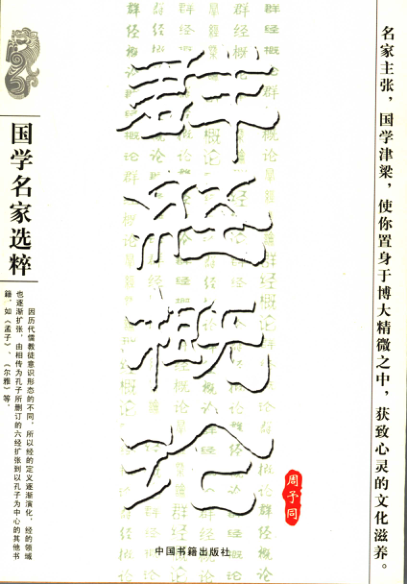 名家主张，国学津梁，使你置身于博大精微之中，获致心灵的文化滋养。
群经概论
周予同
中国书籍出版社
国学名家选粹
因历代儒教徒意识形态的不同，所以经的定义逐渐演化，经的领域
也逐渐扩张，由相传为孔子所删订的六经扩张到以孔子为中心的其他书
籍，如《孟子》、《尔雅》等。